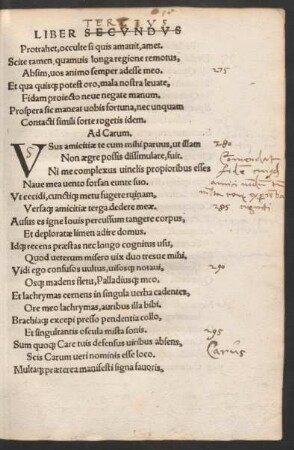 TERTIVS
LIBER SECVNDVS
Protrahet, occulte si quis amauit, amet.
Scite tamen, quamuis longa regione remotus,
Absim, uos animo semper adesse meo. 275
Et qua quisq; potest oro, mala nostra leuate,
Fidam proiecto neue negate manum.
Prospera sic maneat uobis fortuna, nec unquam
Contacti simili sorte rogetis idem.
Ad Carum.
VSus amicitiæ tecum mihi paruus, ut illam 280
Non ægre possis dissimulare, fuit.
Ni me complexus uinclis propioribus esses
Naue mea uento forsan eunte suo.
Vt cecidi, cunctiq; metu fugere ruinam,
Versaq; amicitiæ terga dedere meæ. 285
Ausus es igne Iouis percussum tangere corpus,
Et deploratæ limen adire domus.
Idq; recens præstas nec longo cognitus usu,
Quod ueterum misero uix duo tresue mihi.
Vidi ego confusos uultus, uisosq; notaui, 290
Osq; madens fletu, Palladiusq; meo.
Et lachrymas cernens in singula uerba cadentes,
Ore meo lachrymas, auribus illa bibi.
Brachiaq; excepi presso pendentia collo,
Et singultantis oscula mista sonis. 295
Sum quoq; Care tuis defensus uiribus absens,
Scis Carum ueri nominis esse loco. Carus
Multaq; præterea manifesti signa fauoris,